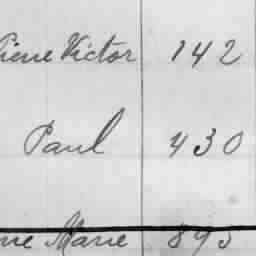 Pierre Victor 142
Paul 430
Marie 895